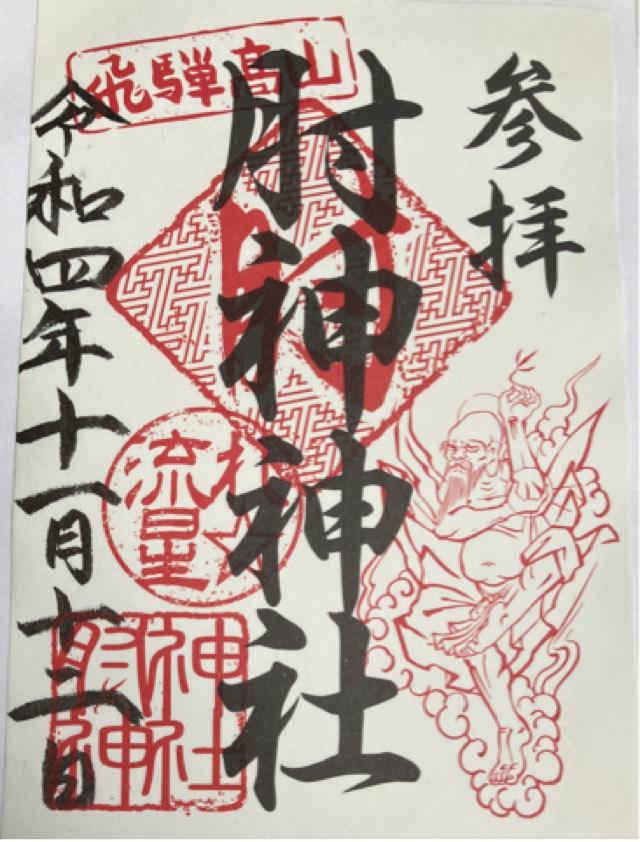 参拝
飛騨高山
肘神神社
流星
令和四年十一月十二日
肘神
神社